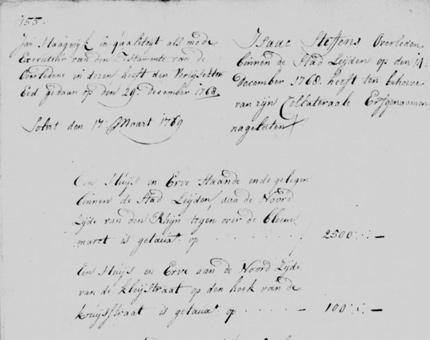 155.
Jan Haagwijk in qualiteijt als mede
Executeur van den Testamente van de
Overledene in dezen heeft den Vereijschten
Eed gedaan op den 29.e december 1768.
Solvit den 17. Maart 1769
Isaac Steffens Overleden
binnen de Stad Leijden op den 14.
December 1768. heeft ten behoeve
van zijn Collaterale Erfgenaamen
nagelaten
Een Huijs en Erve Staande ende gelegen
binnen de Stad Leijden, aan de Noord
Zijde van den Rhijn tegen over de bloem
marct is getaxat op 2500:-:-
Een Huijs en Erve aan de Noord Zijde
van de op den hoek van de
is getaxat op 100:-:-